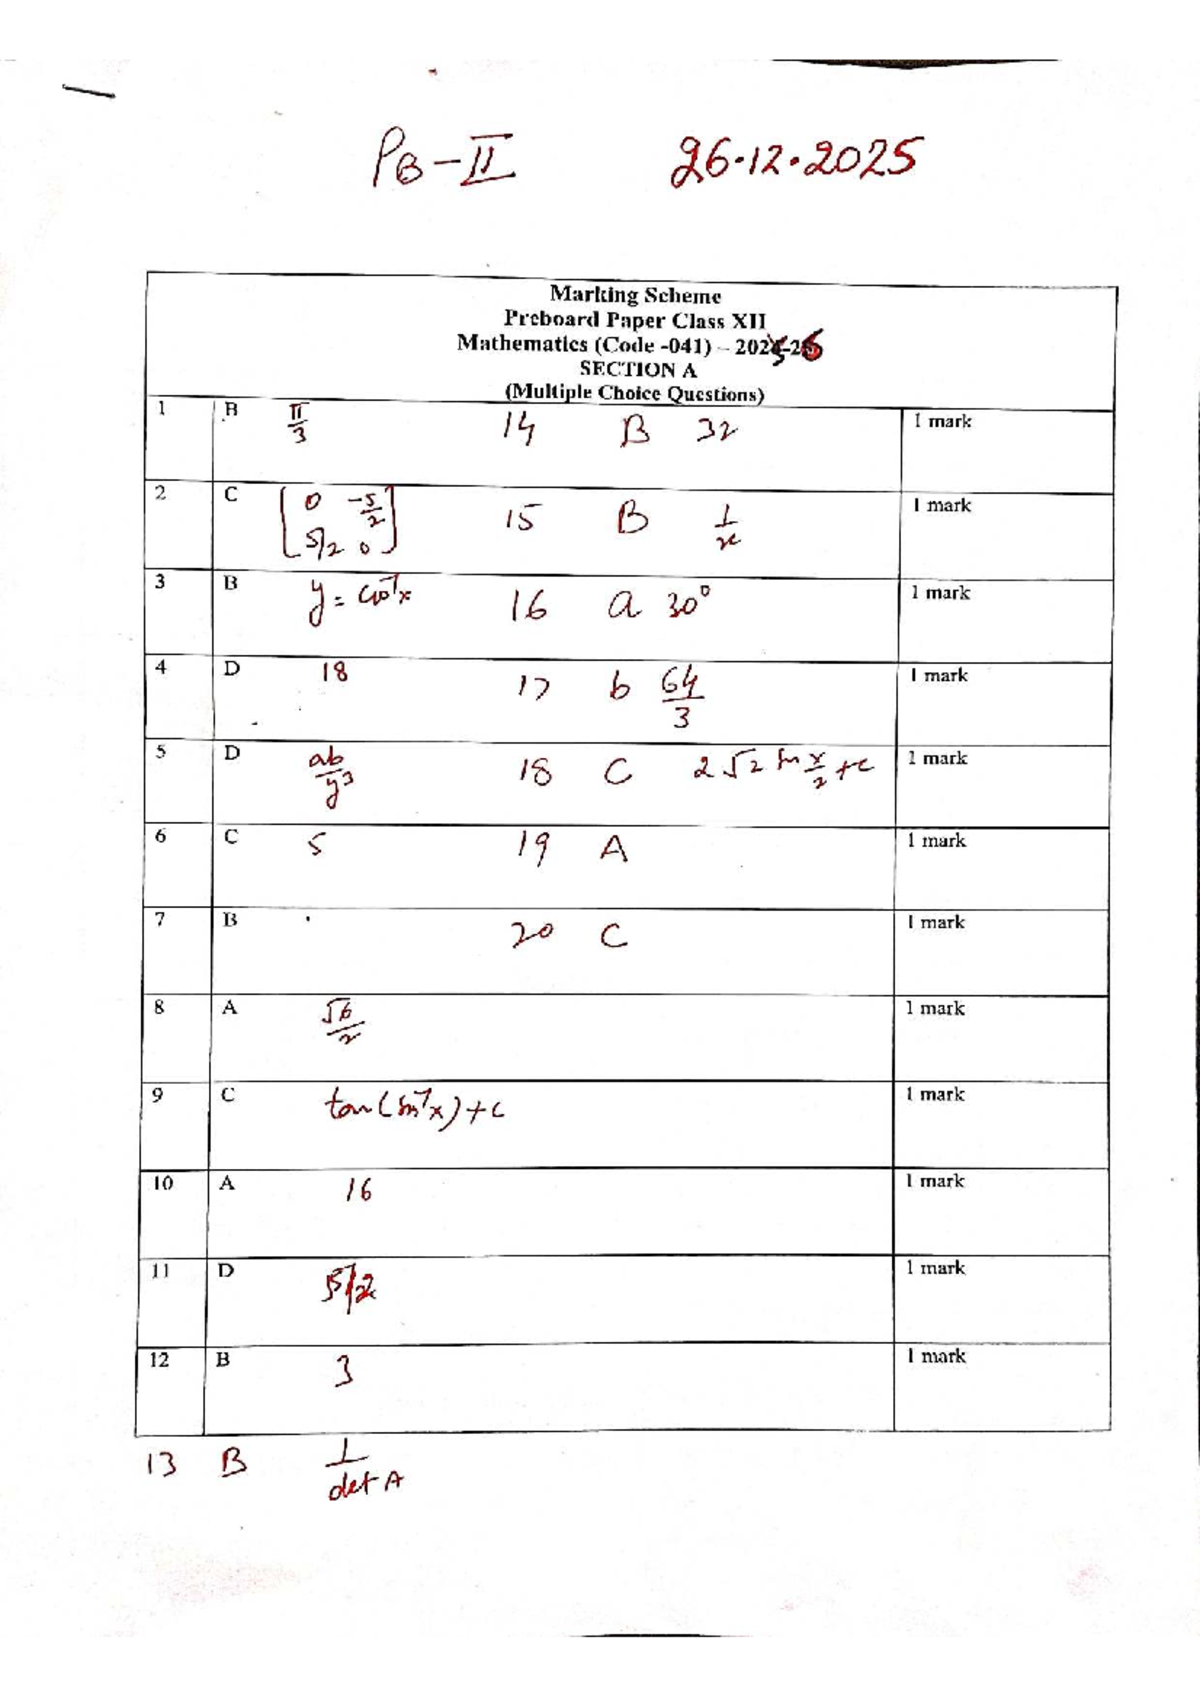 PB-II 26.12.2025
Marking Scheme
Preboard Paper Class XII
Mathematics (Code -041) – 2025-26
SECTION A
(Multiple Choice Questions)
1 B π/3 14 B 32 1 mark
2 C [0 -5/2 5/2 0] 15 B 1/x 1 mark
3 B y = cos⁻¹x 16 a 30° 1 mark
4 D 18 17 b 64/3 1 mark
5 D ab/y³ 18 C 2√2 sin x/2 + c 1 mark
6 C 5 19 A 1 mark
7 B 20 C 1 mark
8 A √6/2 1 mark
9 C tan(sin⁻¹x)+c 1 mark
10 A 16 1 mark
11 D 5/2 1 mark
12 B 3 1 mark
13 B 1/det A